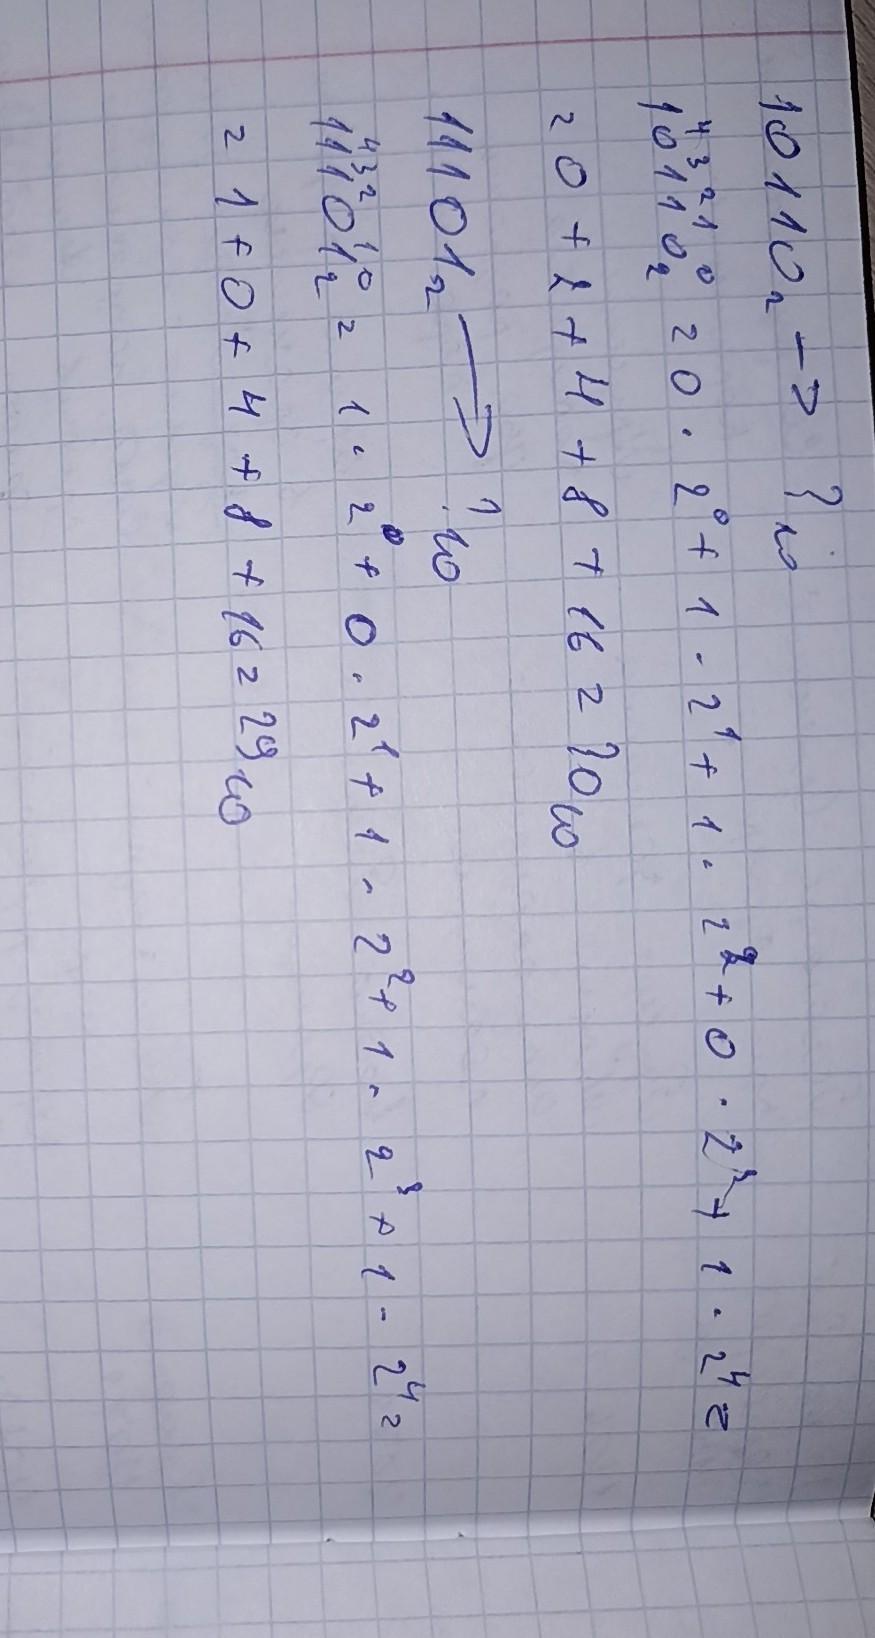 10110₂ → ?₁₀
1⁴0³1²1¹0⁰₂ = 0 · 2⁰ + 1 · 2¹ + 1 · 2² + 0 · 2³ + 1 · 2⁴ =
= 0 + 2 + 4 + 8 + 16 = 30₁₀
11101₂ → ?₁₀
1⁴1³1²0¹1⁰₂ = 1 · 2⁰ + 0 · 2¹ + 1 · 2² + 1 · 2³ + 1 · 2⁴ =
= 1 + 0 + 4 + 8 + 16 = 29₁₀